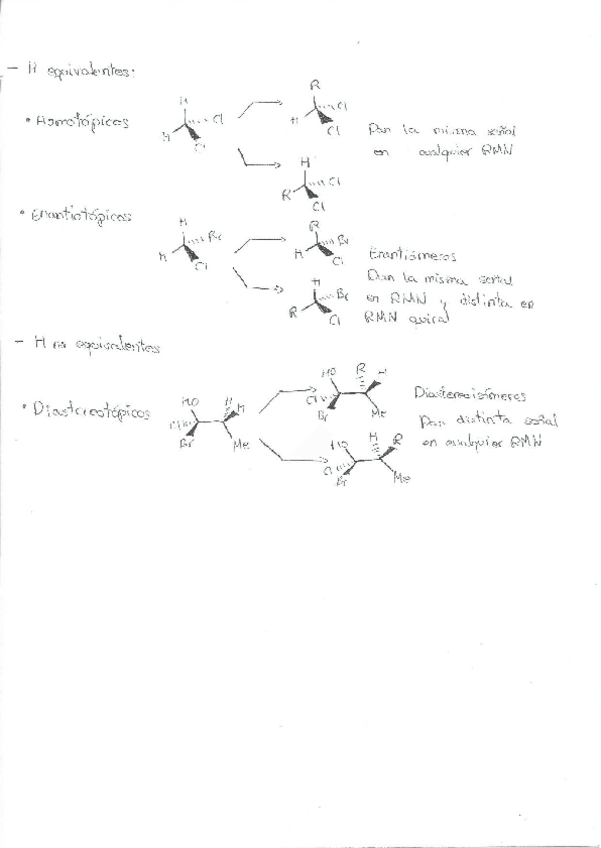 - H equivalentes:
• Homotópicos
H
H
Cl
Cl
R
H
Cl
Cl
H
R
Cl
Cl
Dan la misma señal
en cualquier RMN
• Enantiotópicos
H
H
Br
Cl
R
H
Br
Cl
H
R
Br
Cl
Enantiómeros
Dan la misma señal
en RMN y distinta en
RMN quiral
- H no equivalentes
• Diastereotópicos
HO
Br
H
H
Me
HO
Cl
Br
R
H
Me
HO
Cl
Br
H
R
Me
Diastereoisómeros
Dan distinta señal
en cualquier RMN